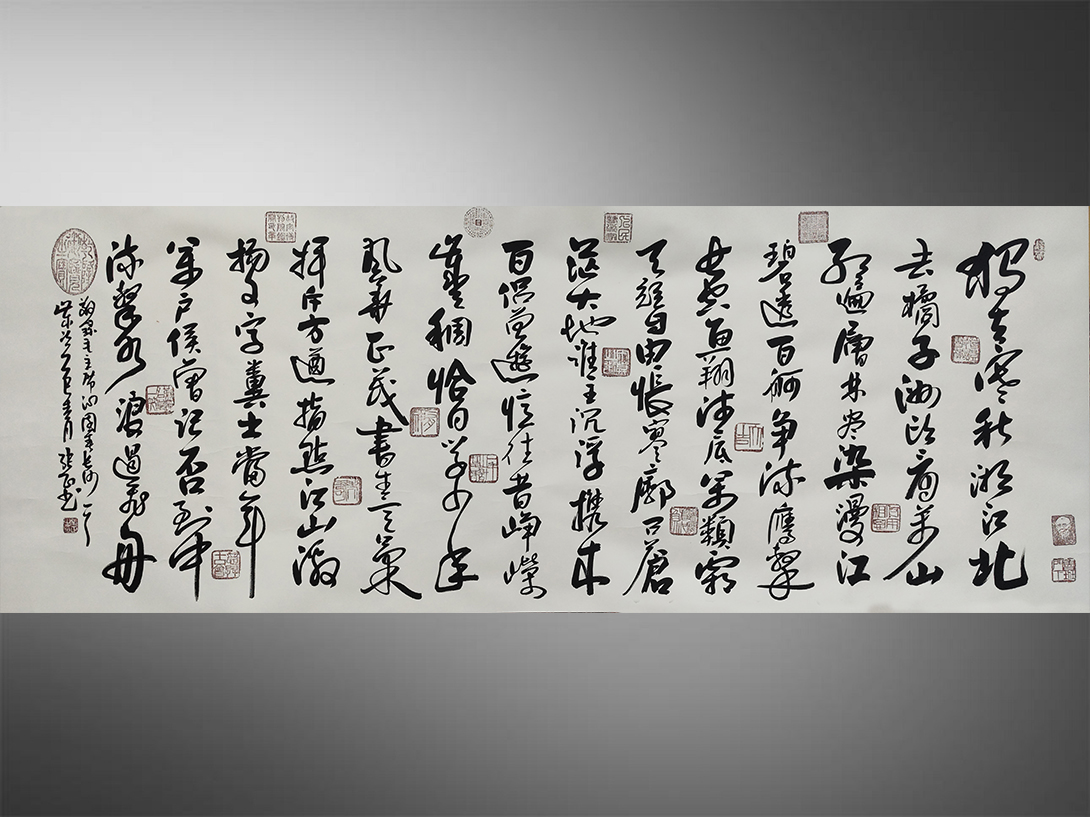 獨立寒秋湘江北
去橘子洲頭看萬山
紅遍層林尽染漫江
碧透百舸争流鷹擊
長空魚翔淺底萬類霜
天競自由悵寥廓問蒼
茫大地誰主沉浮携來
百侶曾遊憶往昔崢嶸
歲月稠恰同學少年
風華正茂書生意氣
揮斥方遒指點江山激
揚文字糞土當年
萬戶侯曾記否到中
流擊水浪遏飛舟
毛主席沁園春長沙一首